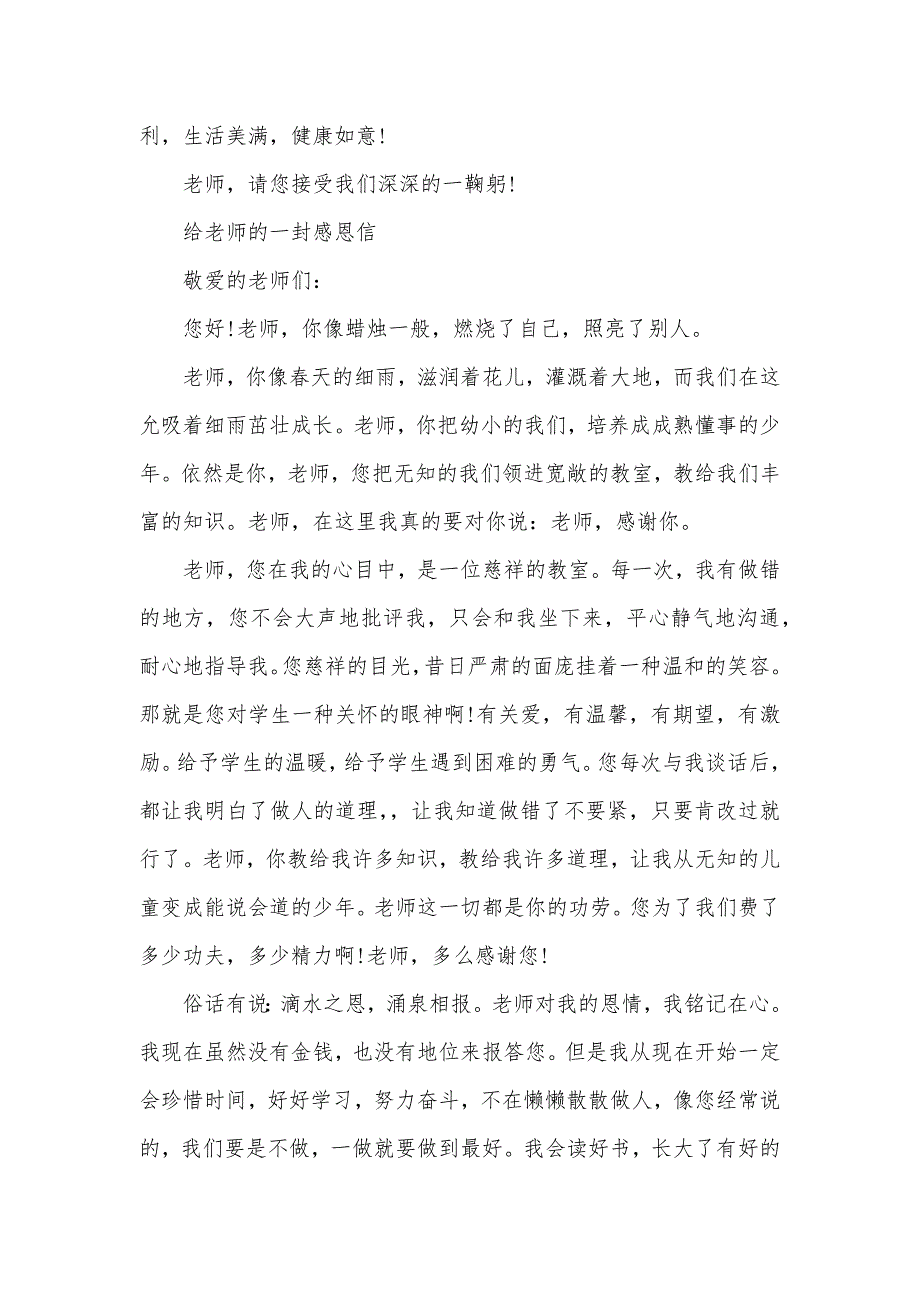 利，生活美满，健康如意!
老师，请您接受我们深深的一鞠躬!
给老师的一封感恩信
敬爱的老师们：
您好!老师，你像蜡烛一般，燃烧了自己，照亮了别人。
老师，你像春天的细雨，滋润着花儿，灌溉着大地，而我们在这
允吸着细雨茁壮成长。老师，你把幼小的我们，培养成成熟懂事的少
年。依然是你，老师，您把无知的我们领进宽敞的教室，教给我们丰
富的知识。老师，在这里我真的要对你说：老师，感谢你。
老师，您在我的心目中，是一位慈祥的教室。每一次，我有做错
的地方，您不会大声地批评我，只会和我坐下来，平心静气地沟通，
耐心地指导我。您慈祥的目光，昔日严肃的面庞挂着一种温和的笑容。
那就是您对学生一种关怀的眼神啊!有关爱，有温馨，有期望，有激
励。给予学生的温暖，给予学生遇到困难的勇气。您每次与我谈话后，
都让我明白了做人的道理，，让我知道做错了不要紧，只要肯改过就
行了。老师，你教给我许多知识，教给我许多道理，让我从无知的儿
童变成能说会道的少年。老师这一切都是你的功劳。您为了我们费了
多少功夫，多少精力啊!老师，多么感谢您!
俗话有说：滴水之恩，涌泉相报。老师对我的恩情，我铭记在心。
我现在虽然没有金钱，也没有地位来报答您。但是我从现在开始一定
会珍惜时间，好好学习，努力奋斗，不在懒懒散散做人，像您经常说
的，我们要是不做，一做就要做到最好。我会读好书，长大了有好的